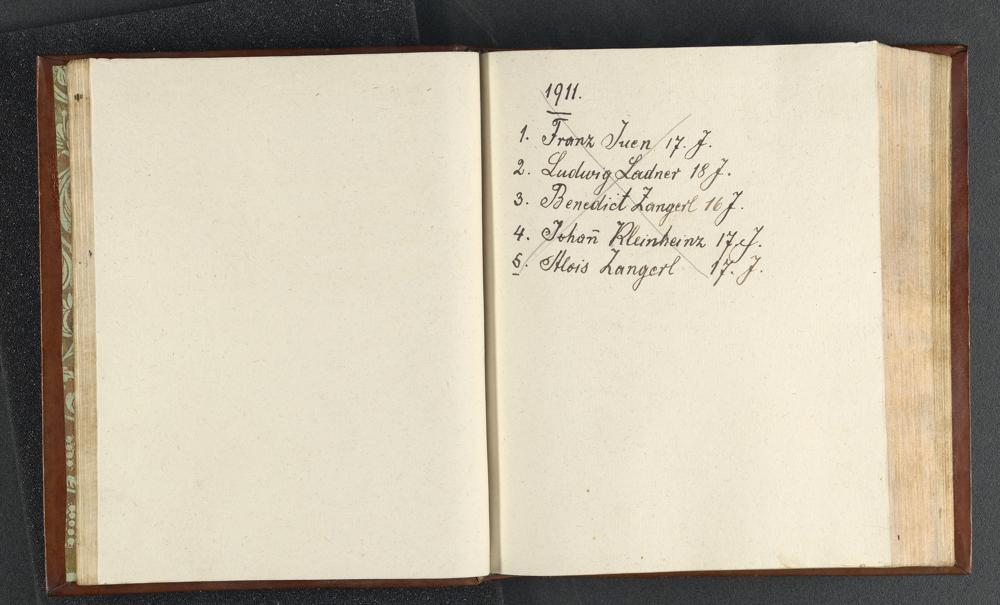 1911.
1. Franz Juen 17. J.
2. Ludwig Ladner 18 J.
3. Benedict Zangerl 16 J.
4. Johan̄ Kleinheinz 17. J.
5. Alois Zangerl 17. J.